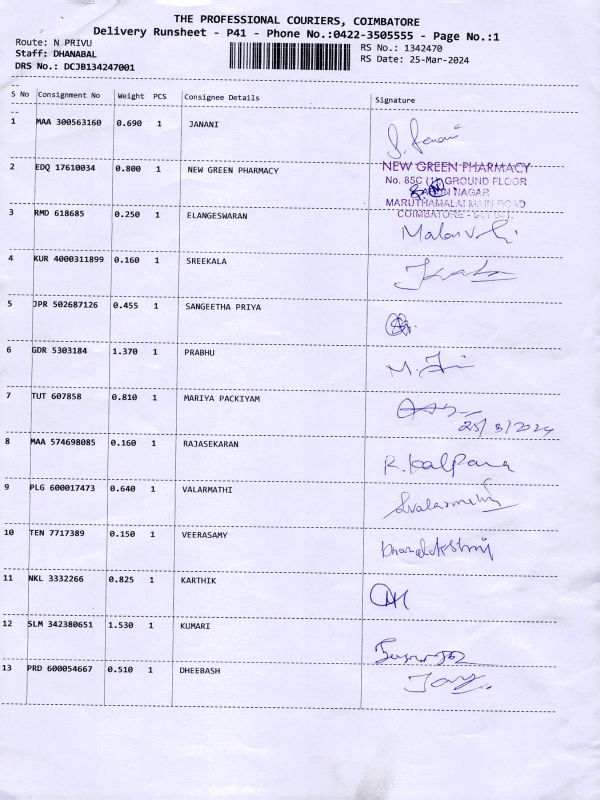 THE PROFESSIONAL COURIERS, COIMBATORE
Delivery Runsheet - P41 - Phone No.:0422-3505555 - Page No.:1
Route: N PRIVU
Staff: DHANABAL
DRS No.: DCJB134247001
RS No.: 1342470
RS Date: 25-Mar-2024
S No Consignment No Weight PCS Consignee Details Signature
1 MAA 300563160 0.690 1 JANANI
2 EDQ 17610034 0.800 1 NEW GREEN PHARMACY
NEW GREEN PHARMACY
No. 85C (1) GROUND FLOOR
NAGAR
MARUTHAMALAI MAIN ROAD
COIMBATORE
3 RMD 618685 0.250 1 ELANGESWARAN
4 KUR 4000311899 0.160 1 SREEKALA
5 JPR 502687126 0.455 1 SANGEETHA PRIYA
6 GDR 5303184 1.370 1 PRABHU
7 TUT 607858 0.810 1 MARIYA PACKIYAM
25/3/2024
8 MAA 574698085 0.160 1 RAJASEKARAN
R. Kalpana
9 PLG 600017473 0.640 1 VALARMATHI
10 TEN 7717389 0.150 1 VEERASAMY
Dhanalakshmi
11 NKL 3332266 0.825 1 KARTHIK
12 SLM 342380651 1.530 1 KUMARI
13 PRD 600054667 0.510 1 DHEEBASH